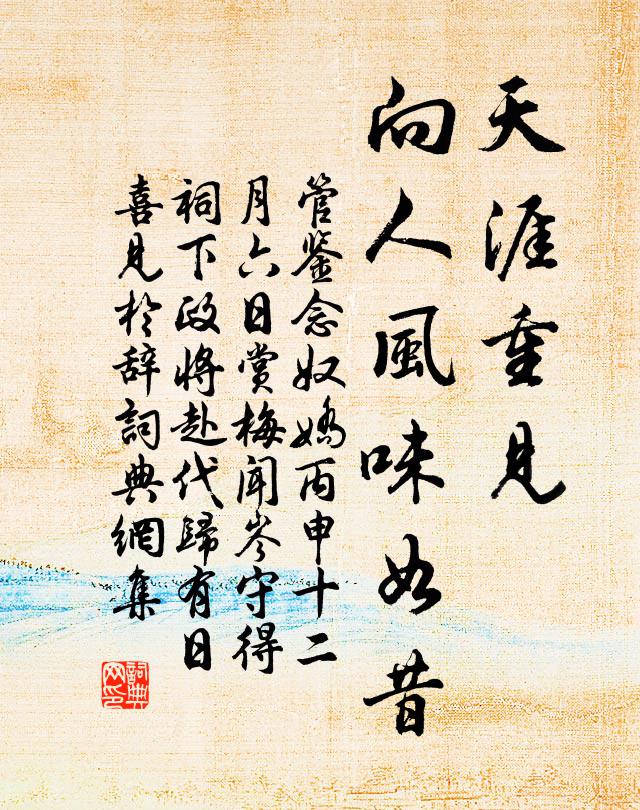 天涯重見
向人風味如昔
管鉴念奴嬌丙申十二
月六日赏梅聞岑守得
祠下政将赴代歸有日
喜見於辞詞典網集
詞典
网印